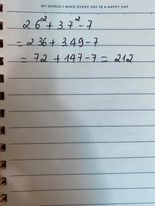 MY WORLD I MAKE EVERY DAY IS A HAPPY DAY
2.6² + 3.7² - 7
= 2.36 + 3.49 - 7
= 72 + 147 - 7 = 212